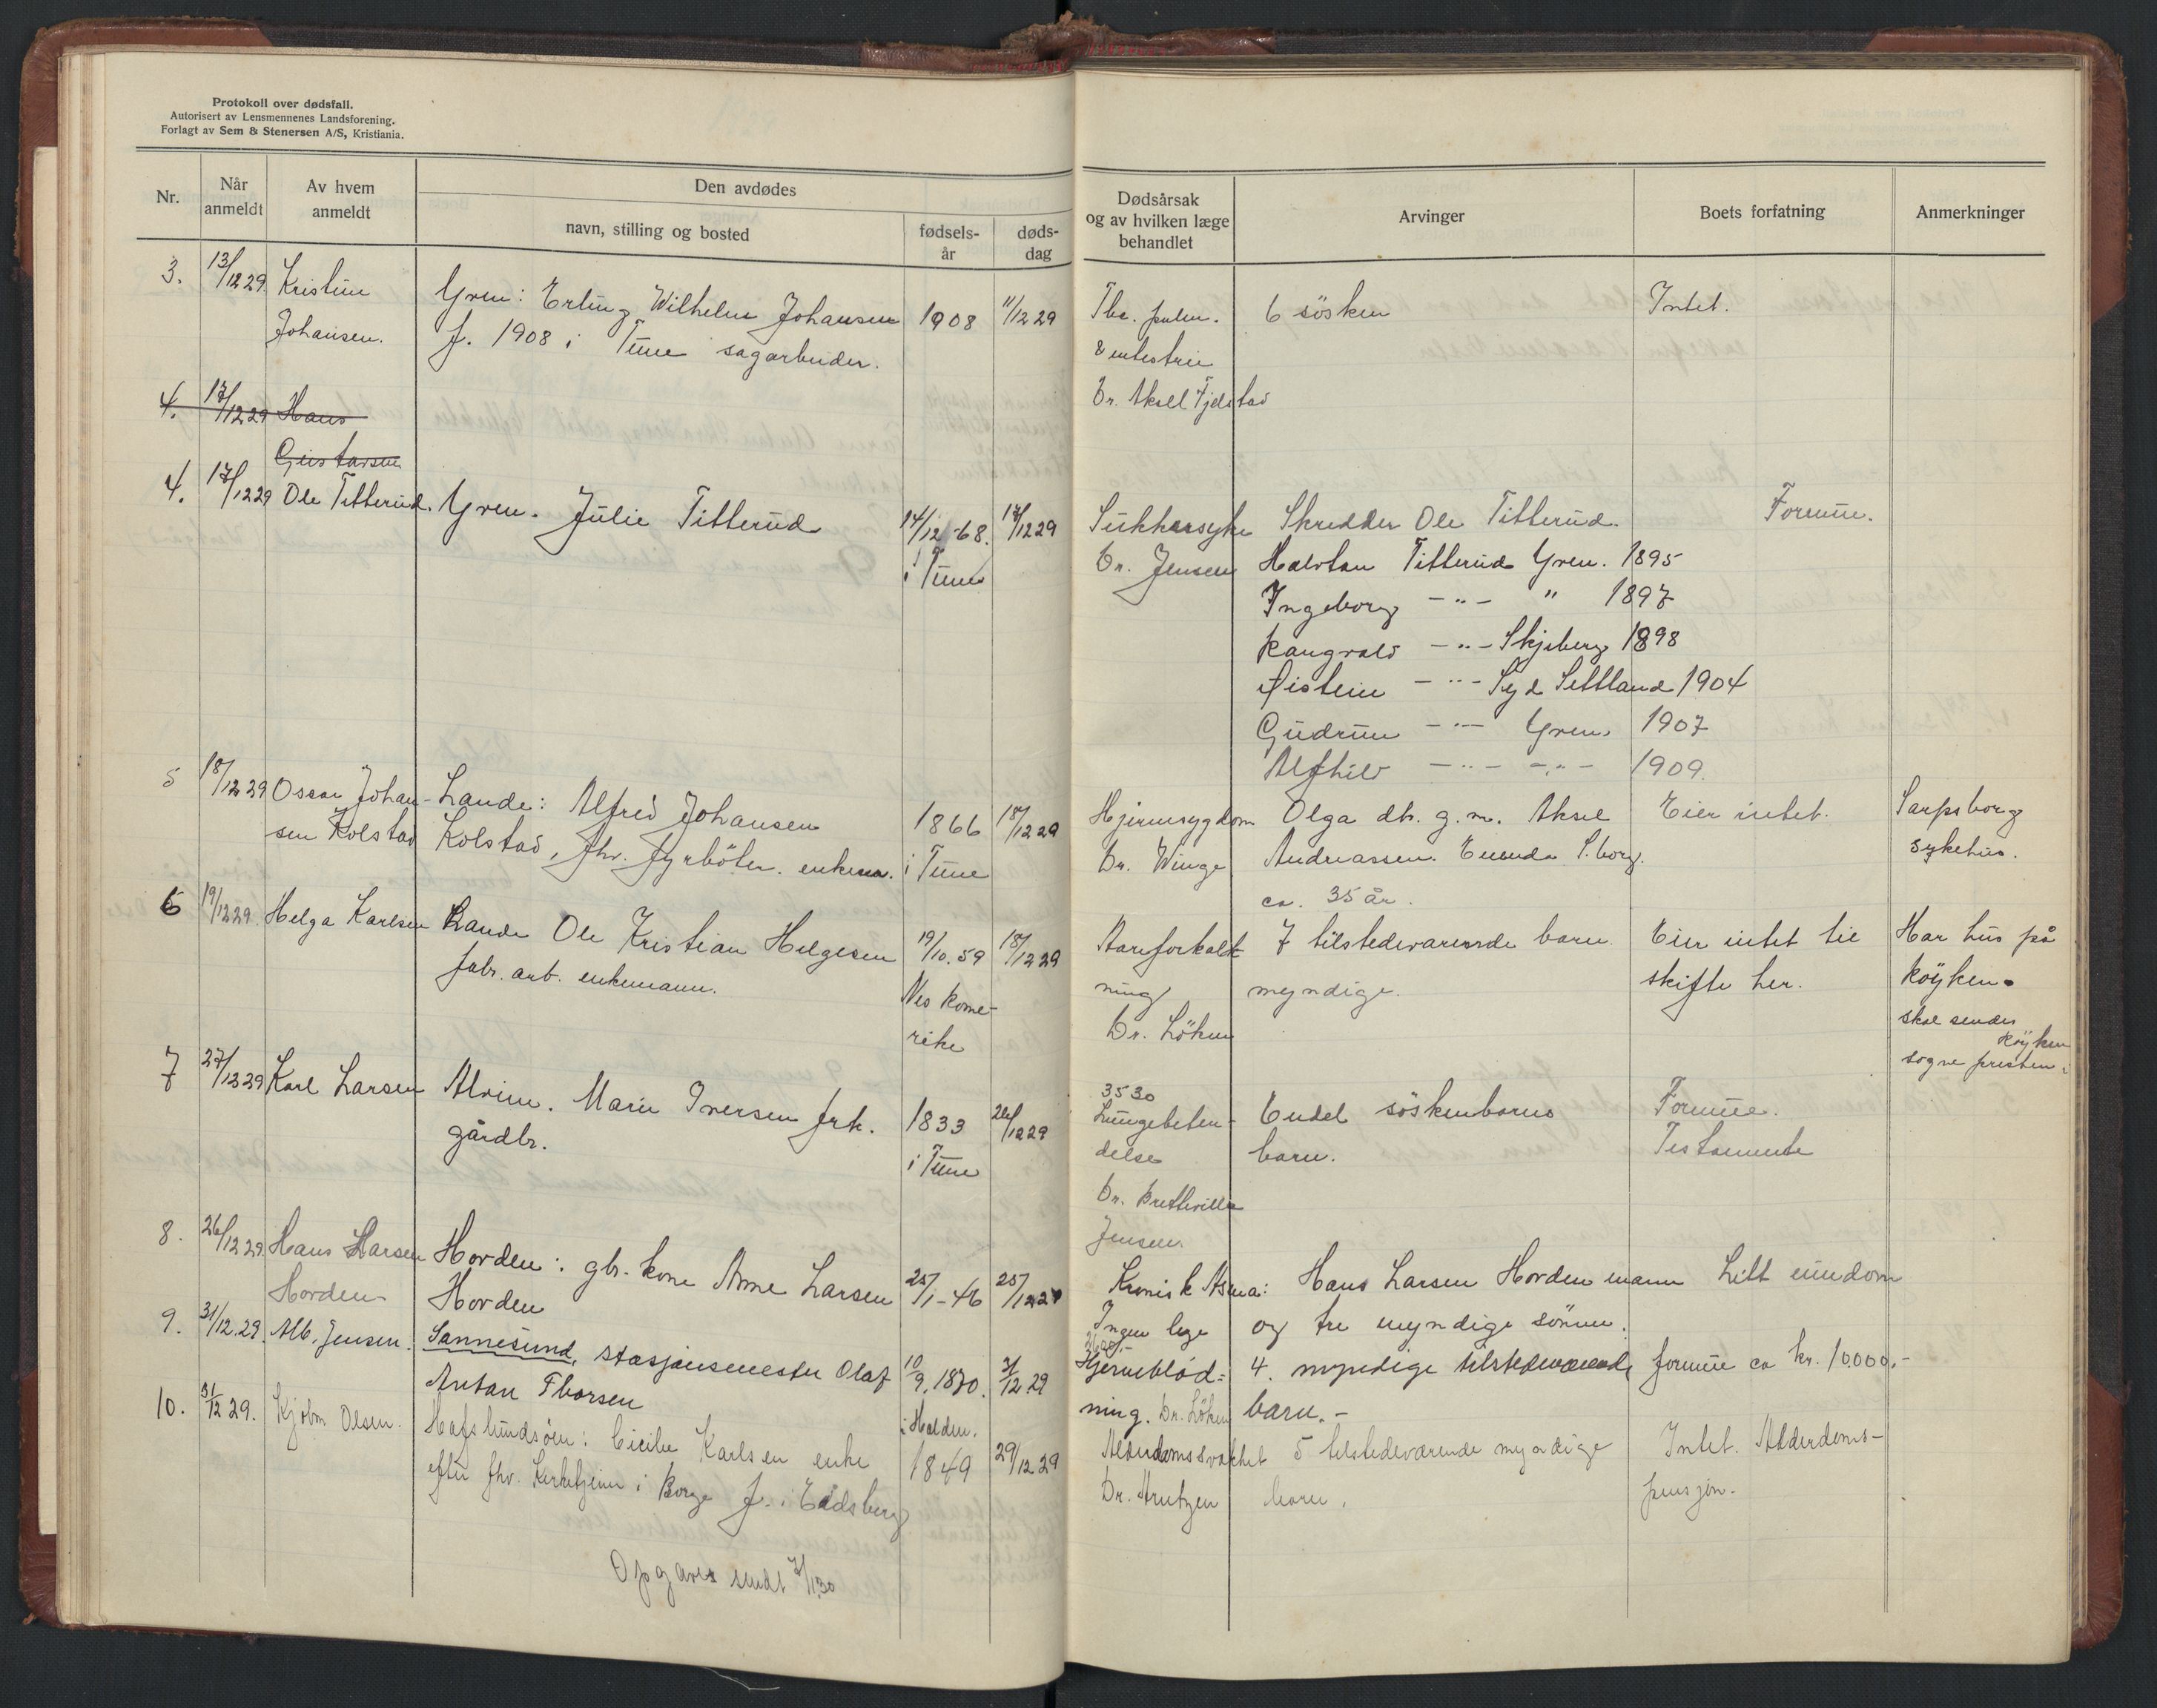 Protokoll over dødsfall.
Autorisert av Lensmennenes Landsforening.
Forlagt av Sem & Stenersen A/S, Kristiania.
Nr.
Når anmeldt
Av hvem anmeldt
Den avdødes
navn, stilling og bosted
fødsels-år
døds-dag
Dødsårsak og av hvilken læge behandlet
Arvinger
Boets forfatning
Anmerkninger
3. 13/12 29. Kristine Yven: Erling Wilhelm Johansen 1908 11/12 29 Tbc. pulm. 6 søsken Intet.
Johansen. f. 1908 i Tune sagarbeider.
Dr. Aksel Fjelstad
4. 17/12 29 Hans
Gustavsen
4. 17/12 29 Ole Titterud. Yven. Julie Titterud 14/12-68. 17/12 29 Sukkersyke Skredder Ole Titterud. Formue.
i Tune Dr. Jensen Halvtan Titterud Yven. 1895
Ingeborg -"- " 1897
Rangvald -"- Skjeberg 1898
Øistein -"- Syd 1904
Gudrun -"- Yven. 1907
Alfhild -"- -"- 1909.
5 18/12 29 Oscar Johan- Lande: Alfred Johansen 1866 18/12 29 Hjernesygdom Olga dtr. g.m. Aksel Eier intet. Sarpsborg
sen Kolstad Kolstad, fhv. fyrbøter. enkem. i Tune Dr. Winge Andreassen. S.borg. sykehus.
ca. 35 år.
6 19/12 29. Helga Karlsen Lande Ole Kristian Helgesen 19/10.59 18/12 29 Aareforkalk- 7 tilstedeværende barn Eier intet til Har hus på
fabr. arb. enkemann. Nes Rome- ning myndige. skifte her. Røyken.
rike Dr. Løken skal sendes
Røyken
sognepresten i
7 27/12 29 Karl Larsen Alvim. Marie Iversen frk. 1833 26/12 29 3530 Lungebeten- Endel søskenbarns Formue.
gårdbr. i Tune delse barn. Testamente
Dr. Bretteville
Jensen.
8. 26/12 29. Hans Larsen Horden: gbr. kone Anne Larsen 25/1-46 25/12 29 Kronisk Asma: Hans Larsen Horden mann Litt eiendom
Horden Horden Ingen lege og tre myndige sønner.
9. 31/12.29. Alb. Jensen. Sannesund, stasjonsmester Olaf 10/9.1870. 31/12.29 Hjerneblød= 4. myndige tilstedeværende formue ca kr. 10.000.-
Anton Thorsen i Halden. ning. Dr. Løken barn.-
10. 31/12 29. Olsen. Hafslundsøen: Cicilie Karlsen enke 1849 29/12 29 Alderdomssvakhet 5 tilstedeværende myndige Intet. Alderdoms-
efter fhv. Kirketjener i Borge f. i Eidsberg Dr. Arntzen barn. pensjon.
Opgave sendt 7/1 30